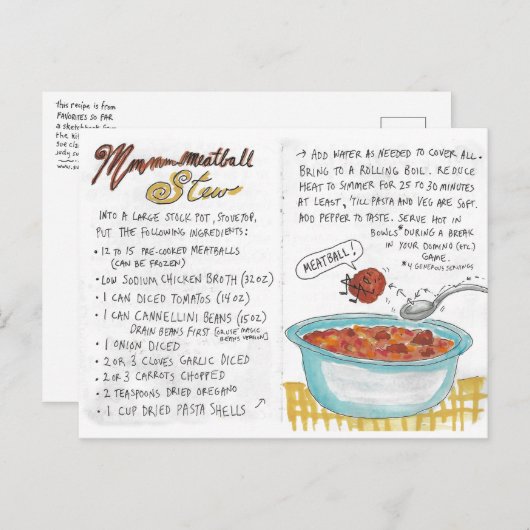 This recipe is from
FAVORITES SO FAR
Mmmmmeatball
Stew
INTO A LARGE STOCK POT, STOVETOP,
PUT THE FOLLOWING INGREDIENTS:
• 12 TO 15 PRE-COOKED MEATBALLS
(CAN BE FROZEN)
• LOW SODIUM CHICKEN BROTH (32 OZ)
• 1 CAN DICED TOMATOS (14 OZ)
• 1 CAN CANNELLINI BEANS (15 OZ)
DRAIN BEANS FIRST [OR USE MAGIC
BEANS VERSION]
• 1 ONION DICED
• 2 OR 3 CLOVES GARLIC DICED
• 2 OR 3 CARROTS CHOPPED
• 2 TEASPOONS DRIED OREGANO
• 1 CUP DRIED PASTA SHELLS
→ ADD WATER AS NEEDED TO COVER ALL.
BRING TO A ROLLING BOIL. REDUCE
HEAT TO SIMMER FOR 25 TO 30 MINUTES
AT LEAST, 'TILL PASTA AND VEG ARE SOFT.
ADD PEPPER TO TASTE. SERVE HOT IN
BOWLS* DURING A BREAK
IN YOUR DOMINO (ETC.)
GAME.
*4 GENEROUS SERVINGS
MEATBALL!